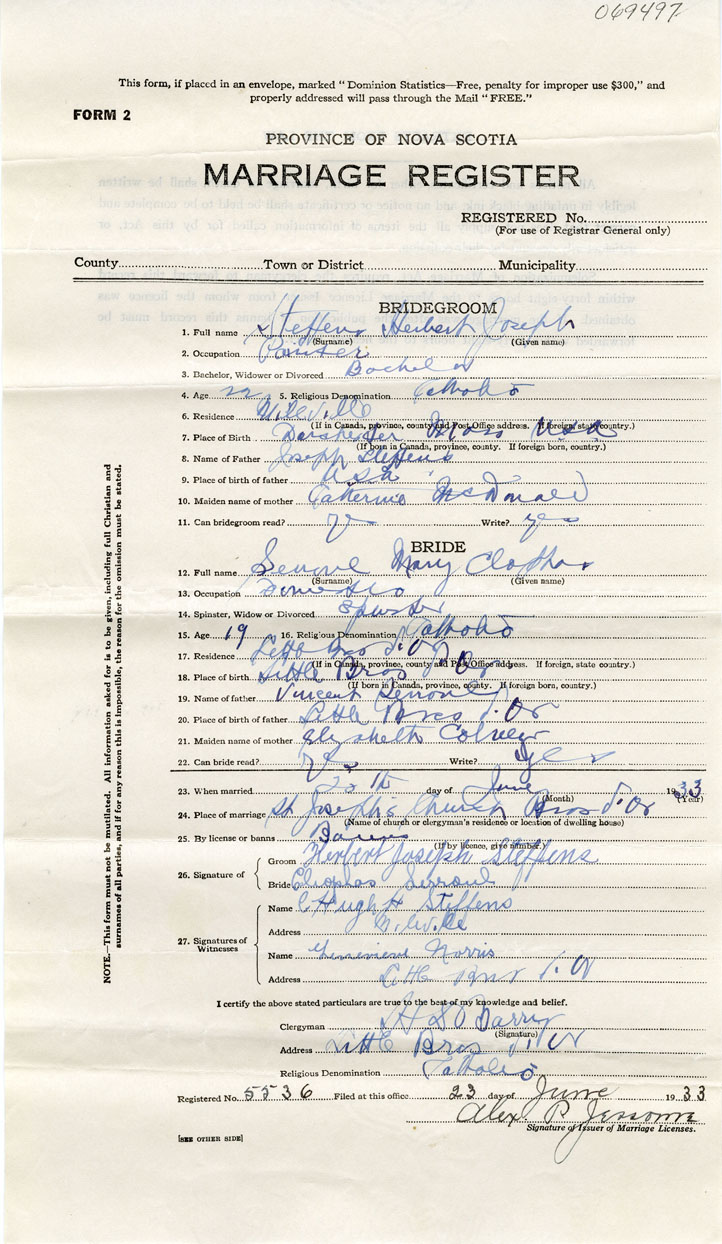 069497
This form, if placed in an envelope, marked "Dominion Statistics—Free, penalty for improper use $300," and
properly addressed will pass through the Mail "FREE."
FORM 2
PROVINCE OF NOVA SCOTIA
MARRIAGE REGISTER
REGISTERED No.
(For use of Registrar General only)
County Town or District Municipality
BRIDEGROOM
1. Full name Steffens Herbert Joseph
(Surname) (Given name)
2. Occupation
3. Bachelor, Widower or Divorced Bachelor
4. Age 22 5. Religious Denomination Catholic
6. Residence
(If in Canada, province, county and Post Office address. If foreign, state country.)
7. Place of Birth Mass USA
(If born in Canada, province, county. If foreign born, country.)
8. Name of Father Joseph Steffens
9. Place of birth of father USA
10. Maiden name of mother Catherine McDonald
11. Can bridegroom read? yes Write? yes
BRIDE
12. Full name Mary
(Surname) (Given name)
13. Occupation Domestic
14. Spinster, Widow or Divorced Spinster
15. Age 19 16. Religious Denomination Catholic
17. Residence Little Bras d'Or
(If in Canada, province, county and Post Office address. If foreign, state country.)
18. Place of birth Little Bras d'Or
(If born in Canada, province, county. If foreign born, country.)
19. Name of father Vincent
20. Place of birth of father Little Bras d'Or
21. Maiden name of mother Elizabeth
22. Can bride read? yes Write? yes
23. When married day of June 1933
(Month) (Year)
24. Place of marriage St Josephs Church Bras d'Or
(Name of church or clergyman's residence or location of dwelling house)
25. By license or banns Banns
(If by licence, give number.)
26. Signature of
Groom Herbert Joseph Steffens
Bride
27. Signatures of Witnesses
Name Hugh H Steffens
Address
Name Genevieve Norris
Address Little Bras d'Or
I certify the above stated particulars are true to the best of my knowledge and belief.
Clergyman Barry
(Signature)
Address Little Bras d'Or
Religious Denomination Catholic
Registered No. 5536 Filed at this office 23 day of June 1933
Alex P. Jessome
Signature of Issuer of Marriage Licenses.
[SEE OTHER SIDE]
NOTE.—This form must not be mutilated. All information asked for is to be given, including full Christian and
surnames of all parties, and if for any reason this is impossible, the reason for the omission must be stated.